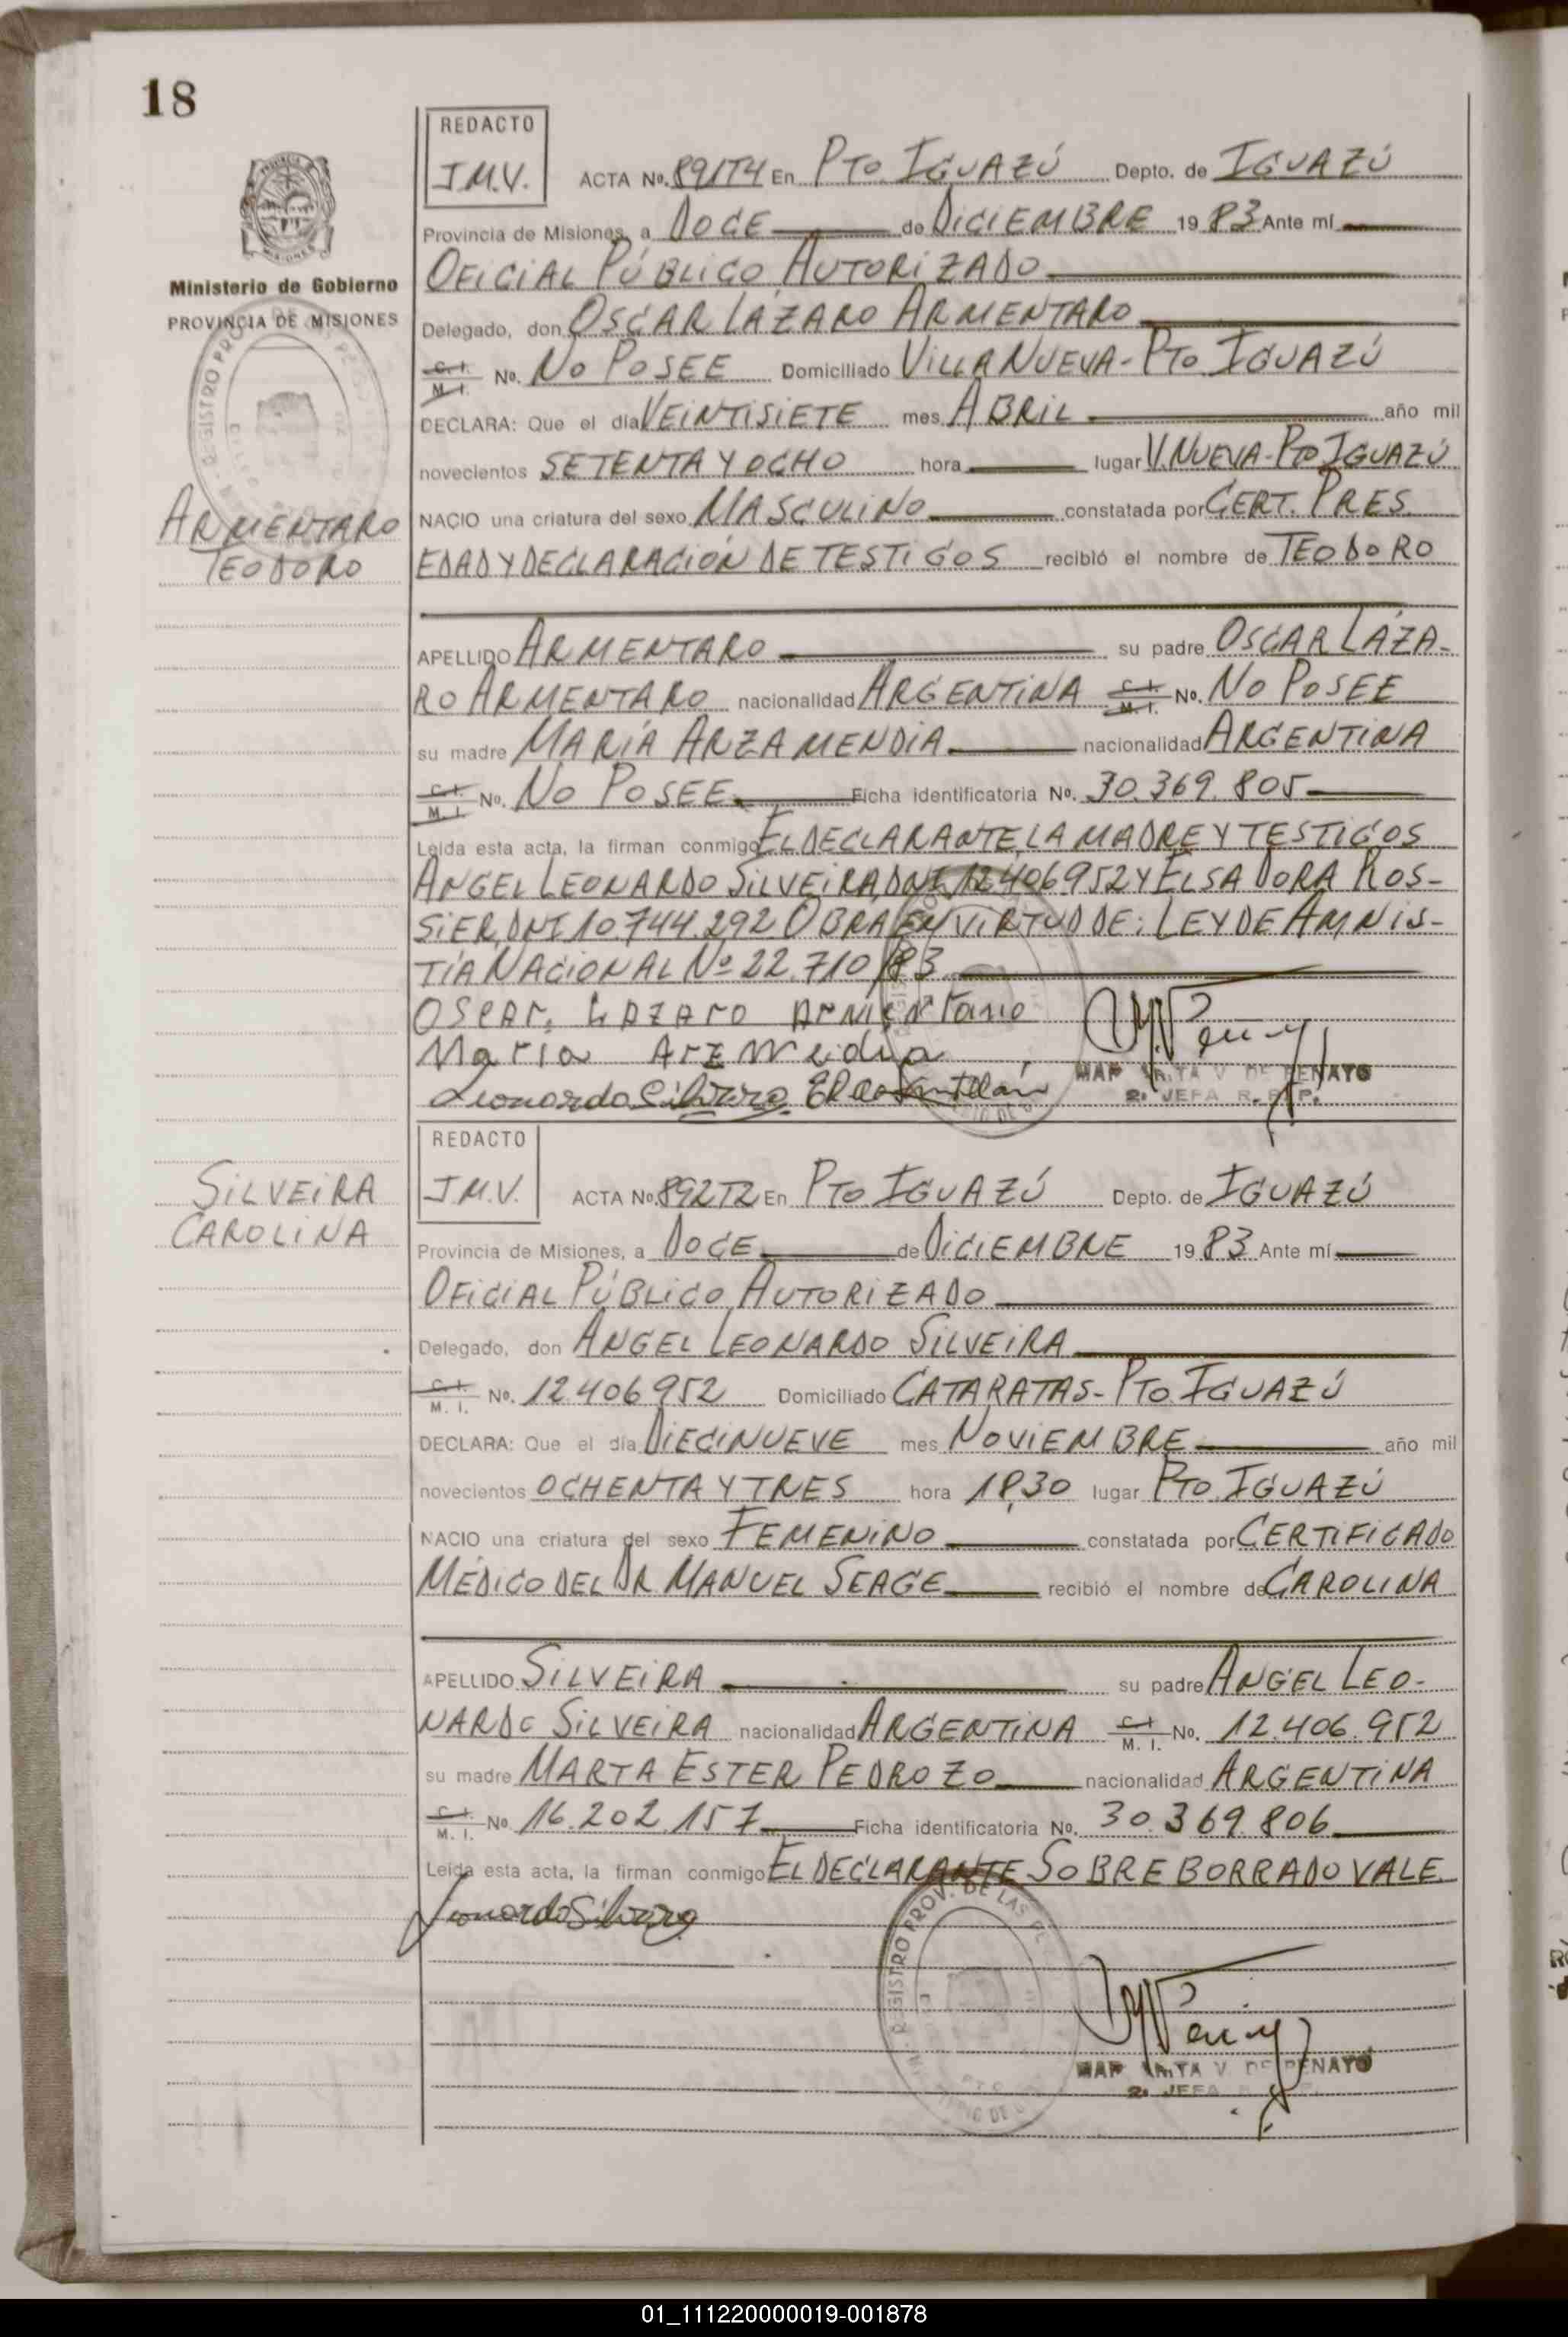 18
REDACTO
J.M.V.
ACTA No. 891T4 En PTO. IGUAZÚ Depto. de IGUAZÚ
Provincia de Misiones, a DOCE de DICIEMBRE 1983 Ante mí
OFICIAL PÚBLICO AUTORIZADO
Delegado, don OSCAR LÁZARO ARMENTARO
C. I. M. I. No. NO POSEE Domiciliado VILLA NUEVA - PTO. IGUAZÚ
DECLARA: Que el día VEINTISIETE mes ABRIL año mil
novecientos SETENTA Y OCHO hora lugar V. NUEVA - PTO IGUAZÚ
NACIO una criatura del sexo MASCULINO constatada por CERT. PRES.
EDAD Y DECLARACIÓN DE TESTIGOS recibió el nombre de TEODORO
APELLIDO ARMENTARO su padre OSCAR LÁZA-
RO ARMENTARO nacionalidad ARGENTINA C. I. M. I. No. NO POSEE
su madre MARÍA ARZAMENDIA nacionalidad ARGENTINA
C. I. M. I. No. NO POSEE Ficha identificatoria No. 30.369.805
Leída esta acta, la firman conmigo EL DECLARANTE, LA MADRE Y TESTIGOS
ANGEL LEONARDO SILVEIRA, DNI 12406952 Y ELSA DORA ROS-
SIER, DNI 10.744.292 OBRA EN VIRTUD DE: LEY DE AMNIS-
TÍA NACIONAL Nº 22.710/83
OSCAR LAZARO ARMENTARO
Maria
Leonardo Silveira
V. DE PENAYO
2. JEFA R. P. P.
Ministerio de Gobierno
PROVINCIA DE MISIONES
ARMENTARO
TEODORO
REDACTO
J.M.V.
ACTA No. 892T2 En PTO. IGUAZÚ Depto. de IGUAZÚ
Provincia de Misiones, a DOCE de DICIEMBRE 1983 Ante mí
OFICIAL PÚBLICO AUTORIZADO
Delegado, don ANGEL LEONARDO SILVEIRA
C. I. M. I. No. 12.406952 Domiciliado CATARATAS - PTO. IGUAZÚ
DECLARA: Que el día DIECINUEVE mes NOVIEMBRE año mil
novecientos OCHENTA Y TRES hora 18,30 lugar PTO. IGUAZÚ
NACIO una criatura del sexo FEMENINO constatada por CERTIFICADO
MÉDICO DEL DR MANUEL SEAGE recibió el nombre de CAROLINA
APELLIDO SILVEIRA su padre ANGEL LEO-
NARDO SILVEIRA nacionalidad ARGENTINA C. I. M. I. No. 12.406.952
su madre MARTA ESTER PEDROZO nacionalidad ARGENTINA
C. I. M. I. No. 16.202.157 Ficha identificatoria No. 30.369.806
Leída esta acta, la firman conmigo EL DECLARANTE SOBREBORRADO VALE.
Leonardo Silveira
V. DE PENAYO
2. JEFA
SILVEIRA
CAROLINA
01_111220000019-001878